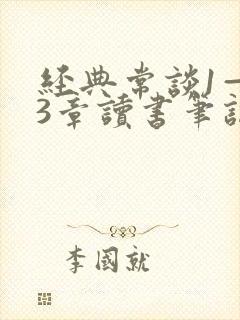 經典常談1—
3章讀書筆記
李國就